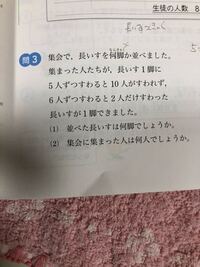 生徒の人数 8
長いすつきゃく
問3 集会で、長いすを何脚か並べました。
集まった人たちが、長いす1脚に
5人ずつすわると10人がすわれず、
6人ずつすわると2人だけすわった
長いすが1脚できました。
(1) 並べた長いすは何脚でしょうか。
(2) 集会に集まった人は何人でしょうか。